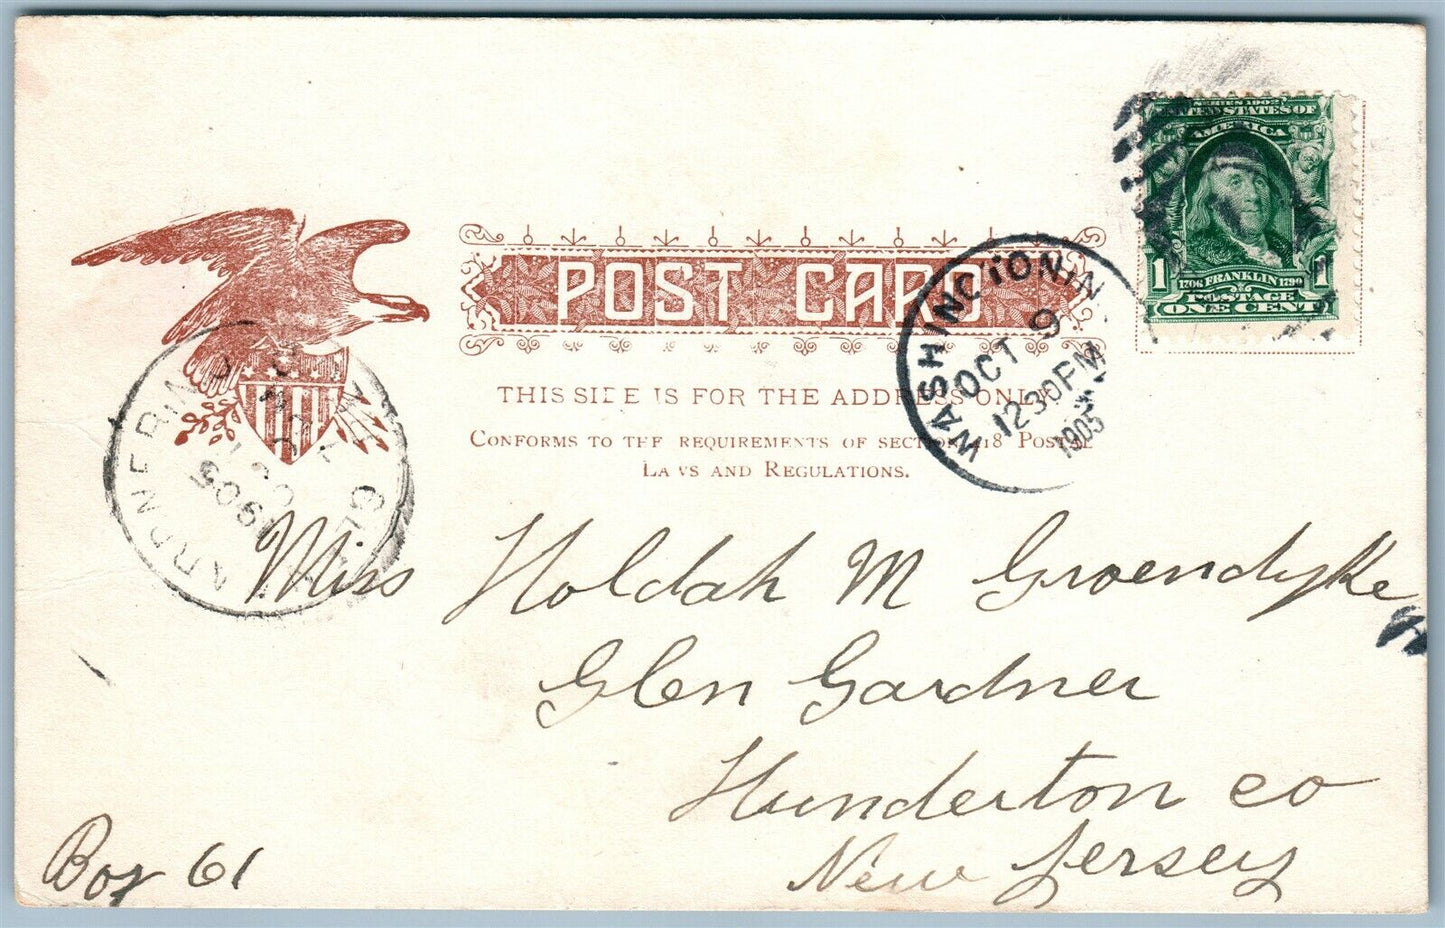 SERIES 1902
UNITED STATES OF
AMERICA
1 1706 FRANKLIN 1790 1
POSTAGE
ONE CENT
POST CARD
WASHINGTON, N.
OCT 9
1230PM
1905
THIS SIDE IS FOR THE ADDRESS ONLY
CONFORMS TO THE REQUIREMENTS OF SECTION 418 POSTAL
LAWS AND REGULATIONS.
1905
Miss Holdah M Groendyke
Glen Gardner
Hunderton co
New Jersey
Box 61